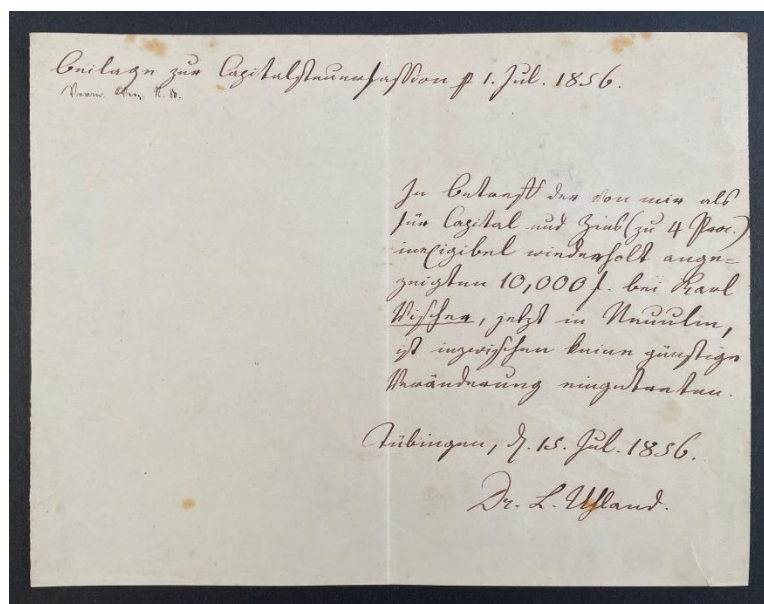 Beilage zur Capitalsteuerfassion p 1. Jul. 1856.
In Betreff der von mir als
für Capital und Zins (zu 4 Proc.)
inexigibel wiederholt ange=
zeigten 10,000 f. bei Karl
Vischer, jetzt in Neuulm,
ist inzwischen keine günstige
Veränderung eingetreten.
Tübingen, d. 15. Jul. 1856.
Dr. L. Uhland.